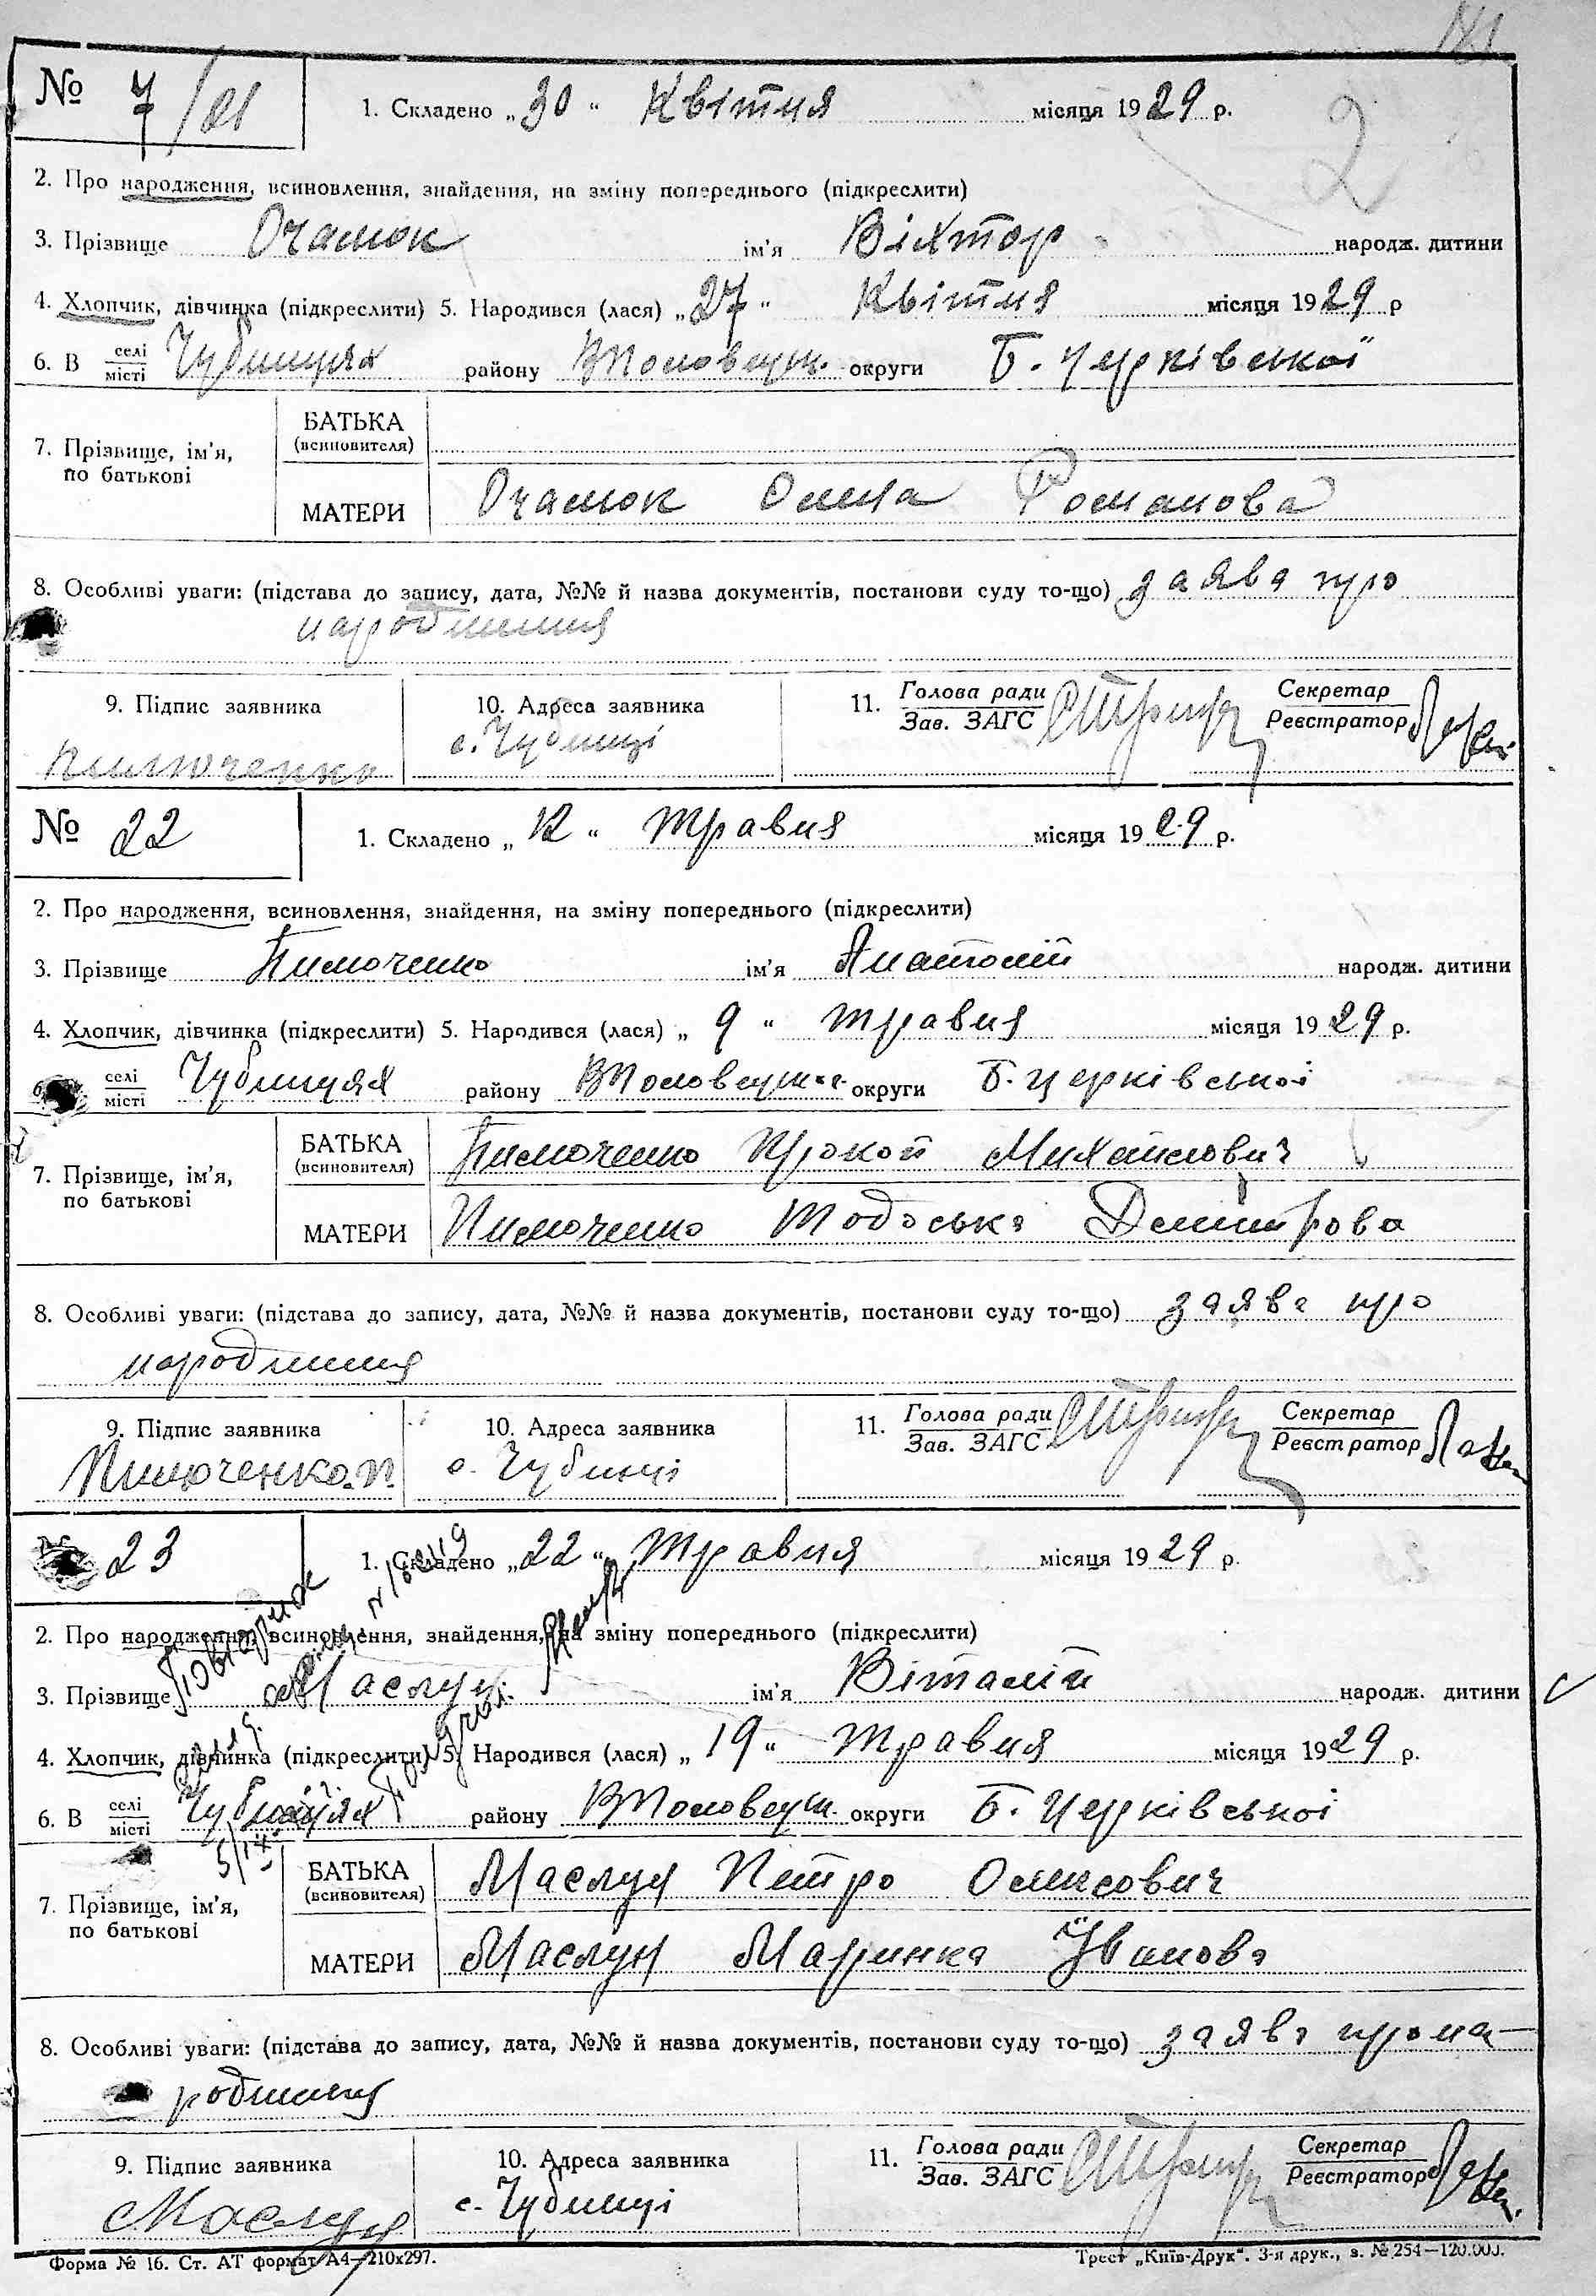 № 7/21
1. Складено „30“ Квітня місяця 1929 р.
2
2. Про народження, всиновлення, знайдення, на зміну попереднього (підкреслити)
3. Прізвище ім'я Віктор народж. дитини
4. Хлопчик, дівчинка (підкреслити) 5. Народився (лася) „27“ Квітня місяця 1929 р
6. В селі місті Чубинцях району округи Б. Церківської
7. Прізвище, ім'я, по батькові
БАТЬКА (всиновителя)
МАТЕРИ Романова
8. Особливі уваги: (підстава до запису, дата, №№ й назва документів, постанови суду то-що) заява про
народження
9. Підпис заявника
10. Адреса заявника
с. Чубинці
11. Голова ради Зав. ЗАГС
Секретар Реєстратор
№ 22
1. Складено „12“ травня місяця 1929 р.
2. Про народження, всиновлення, знайдення, на зміну попереднього (підкреслити)
3. Прізвище ім'я Анатолій народж. дитини
4. Хлопчик, дівчинка (підкреслити) 5. Народився (лася) „9“ травня місяця 1929 р.
6. селі місті Чубинцях району округи Б. Церківської
7. Прізвище, ім'я, по батькові
БАТЬКА (всиновителя) Прокоп Михайлович
МАТЕРИ Тодоська Дмитрова
8. Особливі уваги: (підстава до запису, дата, №№ й назва документів, постанови суду то-що) заява про
народження
9. Підпис заявника
10. Адреса заявника
с. Чубинці
11. Голова ради Зав. ЗАГС
Секретар Реєстратор
23
1. Складено „22“ травня місяця 1929 р.
2. Про народження, всиновлення, знайдення, на зміну попереднього (підкреслити)
3. Прізвище Маслун ім'я Віталій народж. дитини
4. Хлопчик, дівчинка (підкреслити) 5. Народився (лася) „19“ травня місяця 1929 р.
6. В селі місті Чубинцях району округи Б. Церківської
7. Прізвище, ім'я, по батькові
БАТЬКА (всиновителя) Маслун Петро
МАТЕРИ Маслун Маринка Іванова
8. Особливі уваги: (підстава до запису, дата, №№ й назва документів, постанови суду то-що) заява про на-
родження
9. Підпис заявника
Маслун
10. Адреса заявника
с. Чубинці
11. Голова ради Зав. ЗАГС
Секретар Реєстратор
Форма № 16. Ст. АТ формат А4—210х297.
Трест „Київ-Друк“. 3-я друк., з. № 254—120.000.